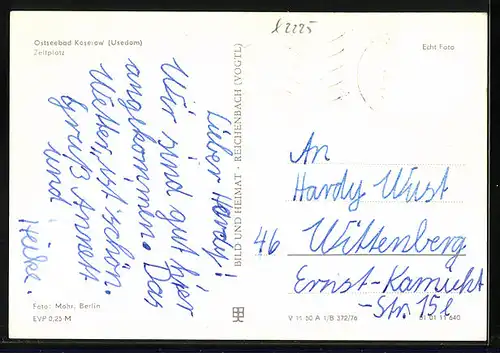 Ostseebad Koserow (Usedom)
Zeltplatz
l 2225
Echt Foto
Lieber Hardy!
Wir sind gut hier
angekommen. Das
Wetter ist schön.
Gruß Annett
und Heike.
BILD UND HEIMAT - REICHENBACH (VOGTL)
An
Hardy Wust
46 Wittenberg
Ernst-Kamieth
-Str. 15e
Foto: Mohr, Berlin
EVP 0,25 M
V 11 50 A 1/B 372/76
01 01 11 640